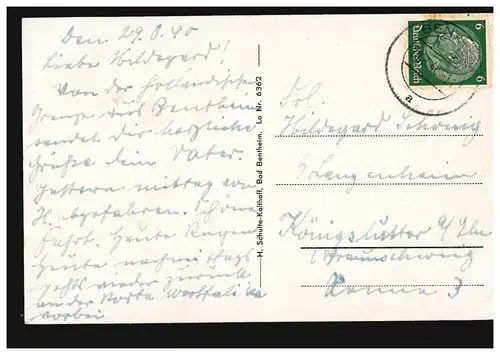 Den 29.8.40
Liebe Hildegard!
Von der Holländischen
Grenze aus Bentheim
sendet dir herzliche
Grüße dein Vater.
Gestern mittag von
H. abgefahren. Schöne
Fahrt. Heute Regen
Heute nachmittags
geht's wieder zurück
an der Porta Westfalika
vorbei
H. Schulte-Kolthoff, Bad Bentheim. Lo Nr. 6362
6 6
Deutsches Reich
a
Frl.
Hildegard
Königslutter
Braunschweig